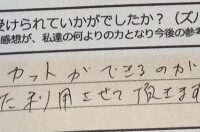 受けられていかがでしたか？（ズバ
感想が、私達の何よりの力となり今後の参考
カットができるのが
た利用をさせて頂きます